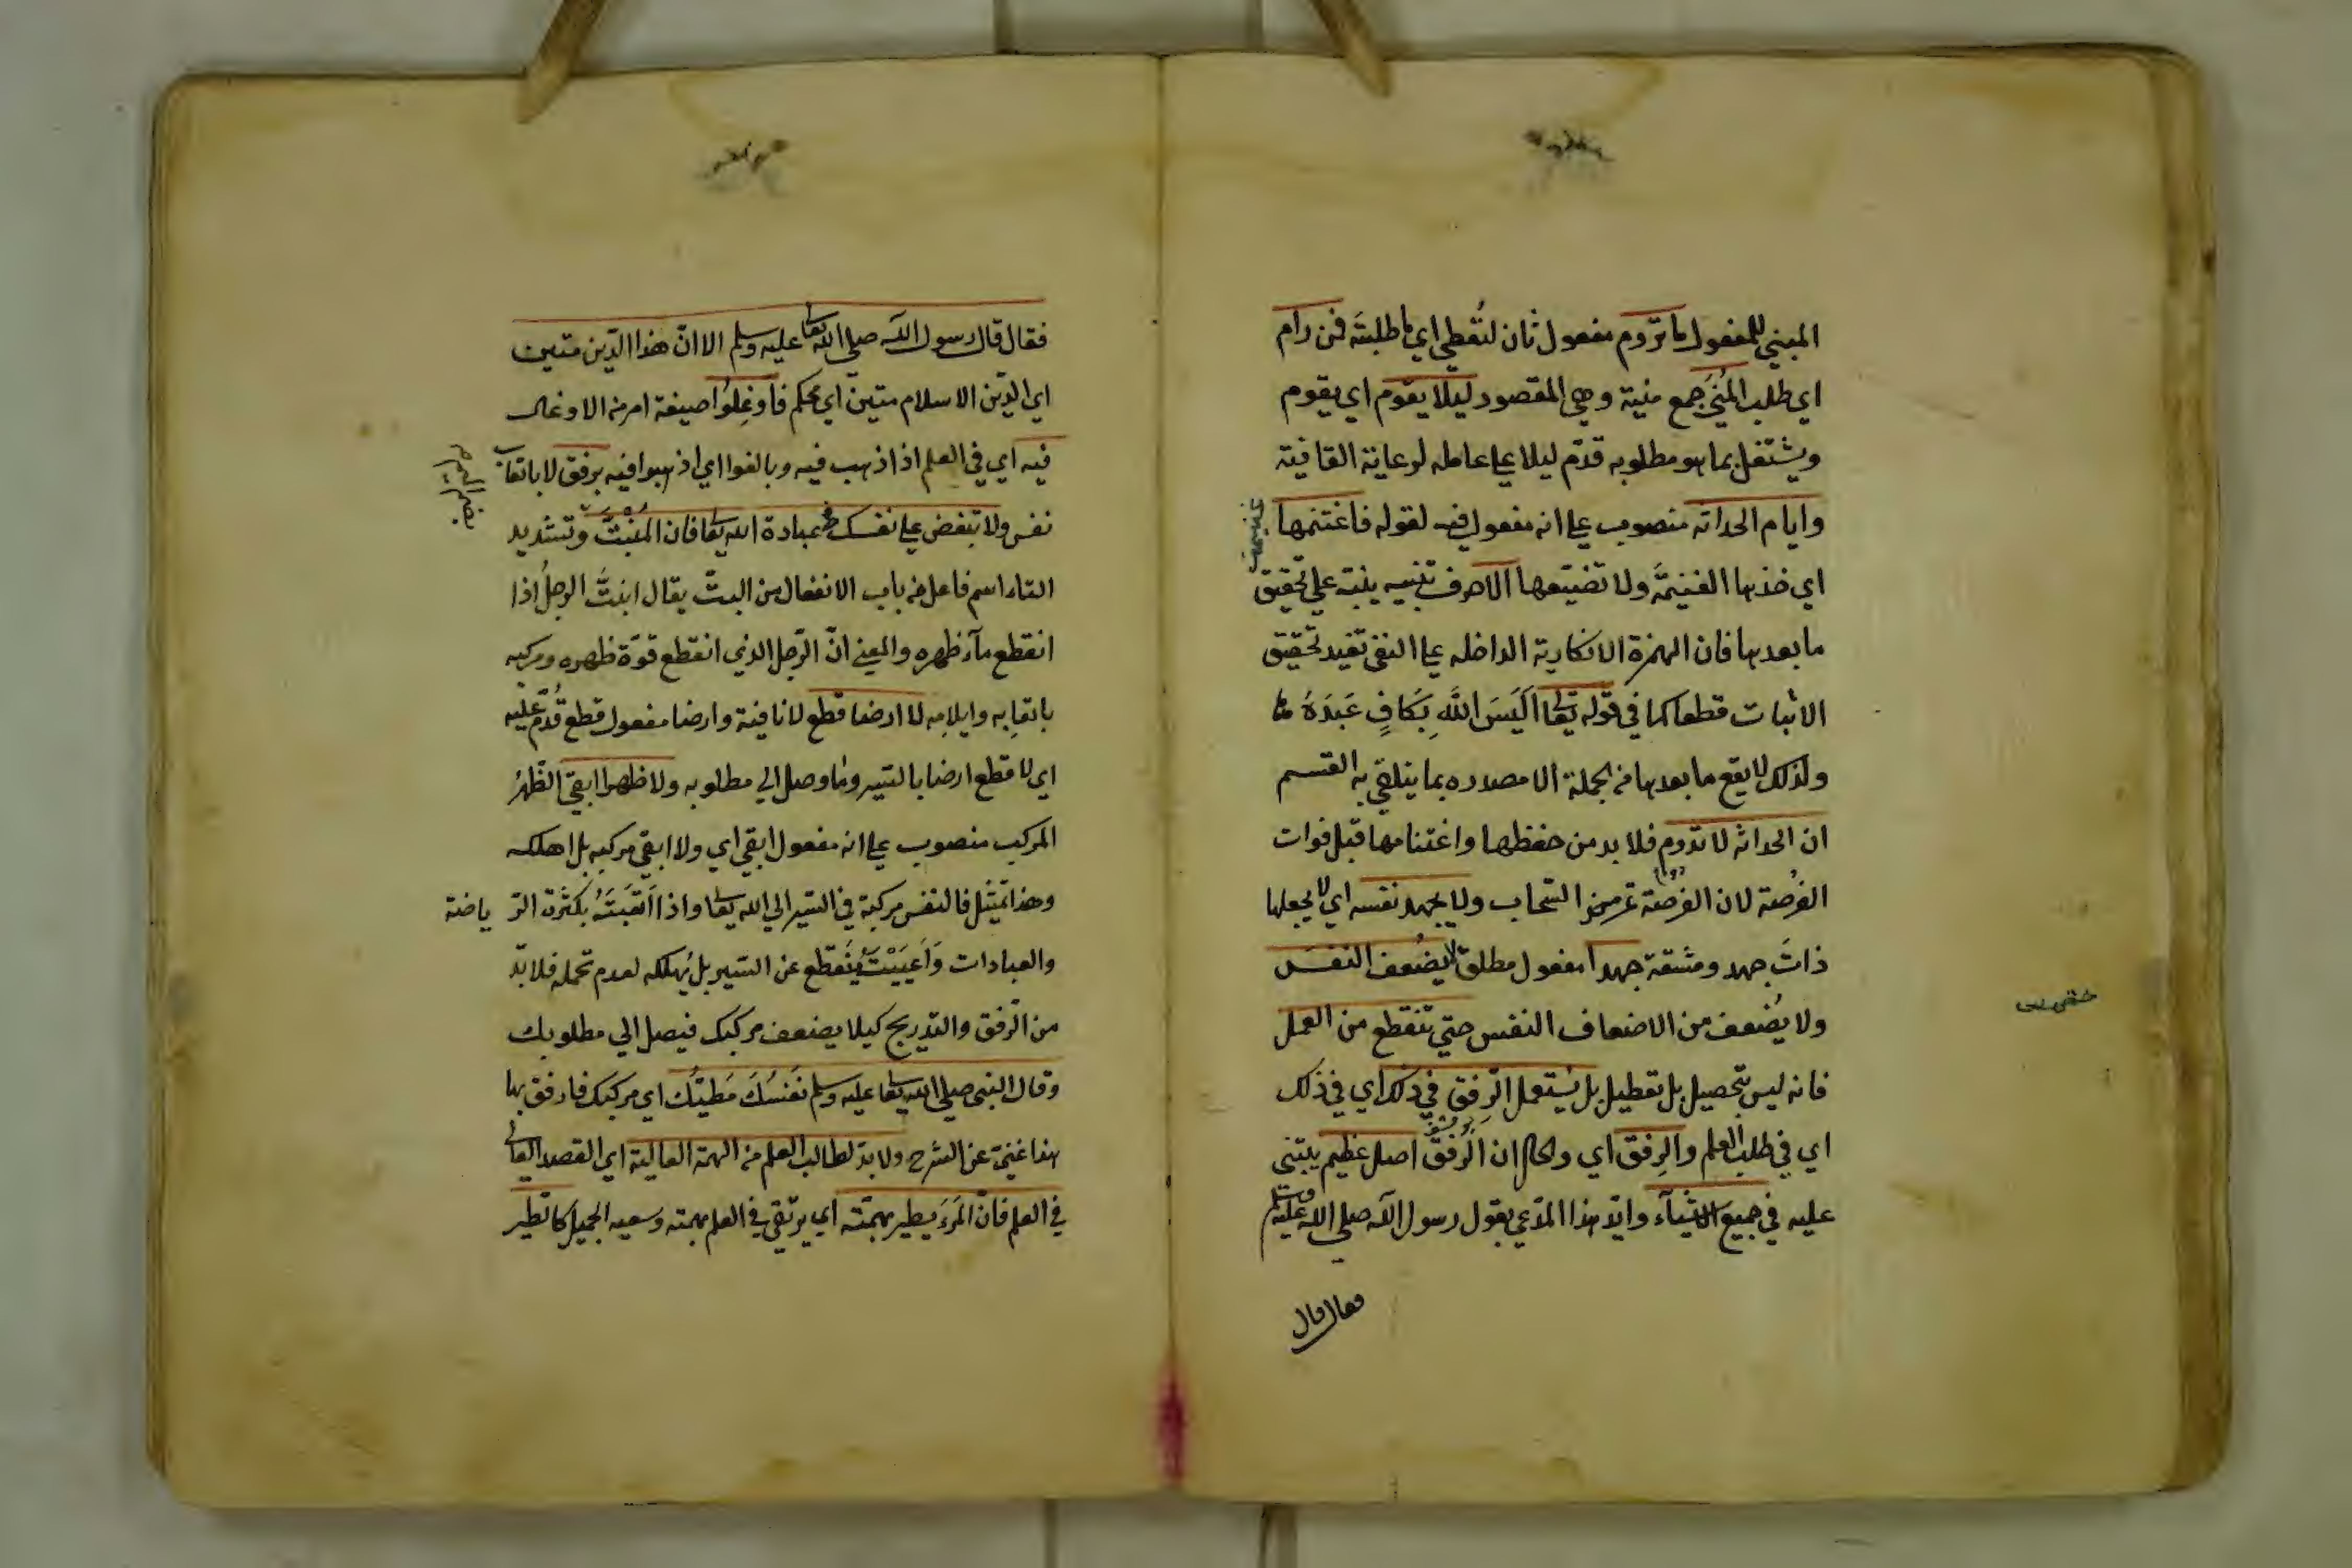 المبني للمفعول ما تروم مفعول ثان لتُعطي اي ما طلبتَه فمن رام
اي طلب المُنَي جمع منية وهي المقصود ليلا يقوم اي يقوم
ويشتغل بما هو مطلوبه قدّم ليلا علي عامله لرعاية القافية
وايام الحداثه منصوب علي انه مفعول فيه لقوله فاغتنمها
اي خذ بها الغنيمَة ولا تضيّعها الا حرف تنبيه ينبّه علي تحقيق
ما بعدها فان الهمزة الانكارية الداخله علي النفي تفيد تحقيق
الاثبات قطعا كما في قوله تعا اَلَيسَ اللَّه بِكَافٍ عَبدَهُ
ولذلك لا يقع ما بعدها من الجملة الا مصدره بما يتلقي به القسم
ان الحداثه لا تدوم فلا بد من حفظها واغتنامها قبل فوات
الفُرصَة لان الفرصَة تمر مر السّحاب ولا يجهد نفسه اي لا يجعلها
ذاتَ جهد ومشقة جهدا مفعول مطلق لا يضُعف النفسَ
ولا يُضعف من الاضعاف النفس حتي تنقطع من العمل
فانه ليس بتحصيل بل تعطيل بل يستعمل الرِفق في ذلك اي في ذلك
اي في طلب العلم والرِفق اي والحال ان الرّفق اصل عظيم يبتني
عليه في جميع الاشياء وايّد هذا المدّعي بقول رسول الله صلي الله عليه وسلم
فقال قال
فقال قال رسول الله صلي الله تعا عليه وسلم الا انّ هذا الدّين متين
اي الدّين الاسلام متين اي محكم فاَوغِلُوا صيغة امر من الاوغال
فيه اي في العلم اذا ذهب فيه وبالغوا اي اذهبوا فيه برفق لا باتعاب
نفس ولا تبغض علي نفسك عبادة الله تعا فان المُنْبَتَّ وتشديد
التاء اسم فاعل من باب الانفعال من البتّ يقال انبتَّ الرجلُ اذا
انقطع ماء ظهره والمعني انّ الرّجل الذي انقطع قوّة ظهره ومركبه
باتعابه وايلامه لا ارضا قطع لا نافية وارضا مفعول قطع قُدّم عليه
اي لا قطع ارضا بالسّير وما وصل الي مطلوبه ولا ظهرا ابقيَ الظّهرُ
المركب منصوب علي انه مفعول ابقي اي ولا ابقي مركبه بل اهلكه
وهذا تمثيل فالنفس مركبة في السّير الي الله تعا واذا اَتعَبتَهُ بكثرت الرّ ياضة
والعبادات وَاَعيَيْتَهُ يَنقَطع عن السّير بل يُهلكه لعدم تحمله فلا بدّ
من الرّفق والتّدريج كيلا يضعف مركبك فيصل الي مطلوبك
وقال النبي صلي الله تعا عليه وسلم نَفسُكَ مَطيَّتُك اي مركبك فارفق بها
هذا غنيّ عن الشرح ولا بدّ لطالب العلم من الهمة العالية اي القصد العالي
في العلم فانّ المَرءَ يطير بهمّته اي يرتقي في العلم بهمته وسعيه الجميل كالطّير